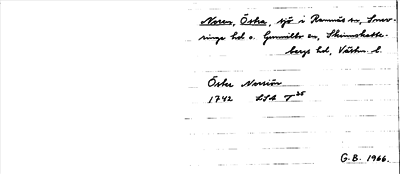 Noren, Östra, sjö i Ramnäs sn, Snev-
ringe hd o. Gunnilbo sn, Skinnskatte-
bergs hd, Västm. l.
Öster Norsiön
1742 LSA T 25
G.B. 1966.